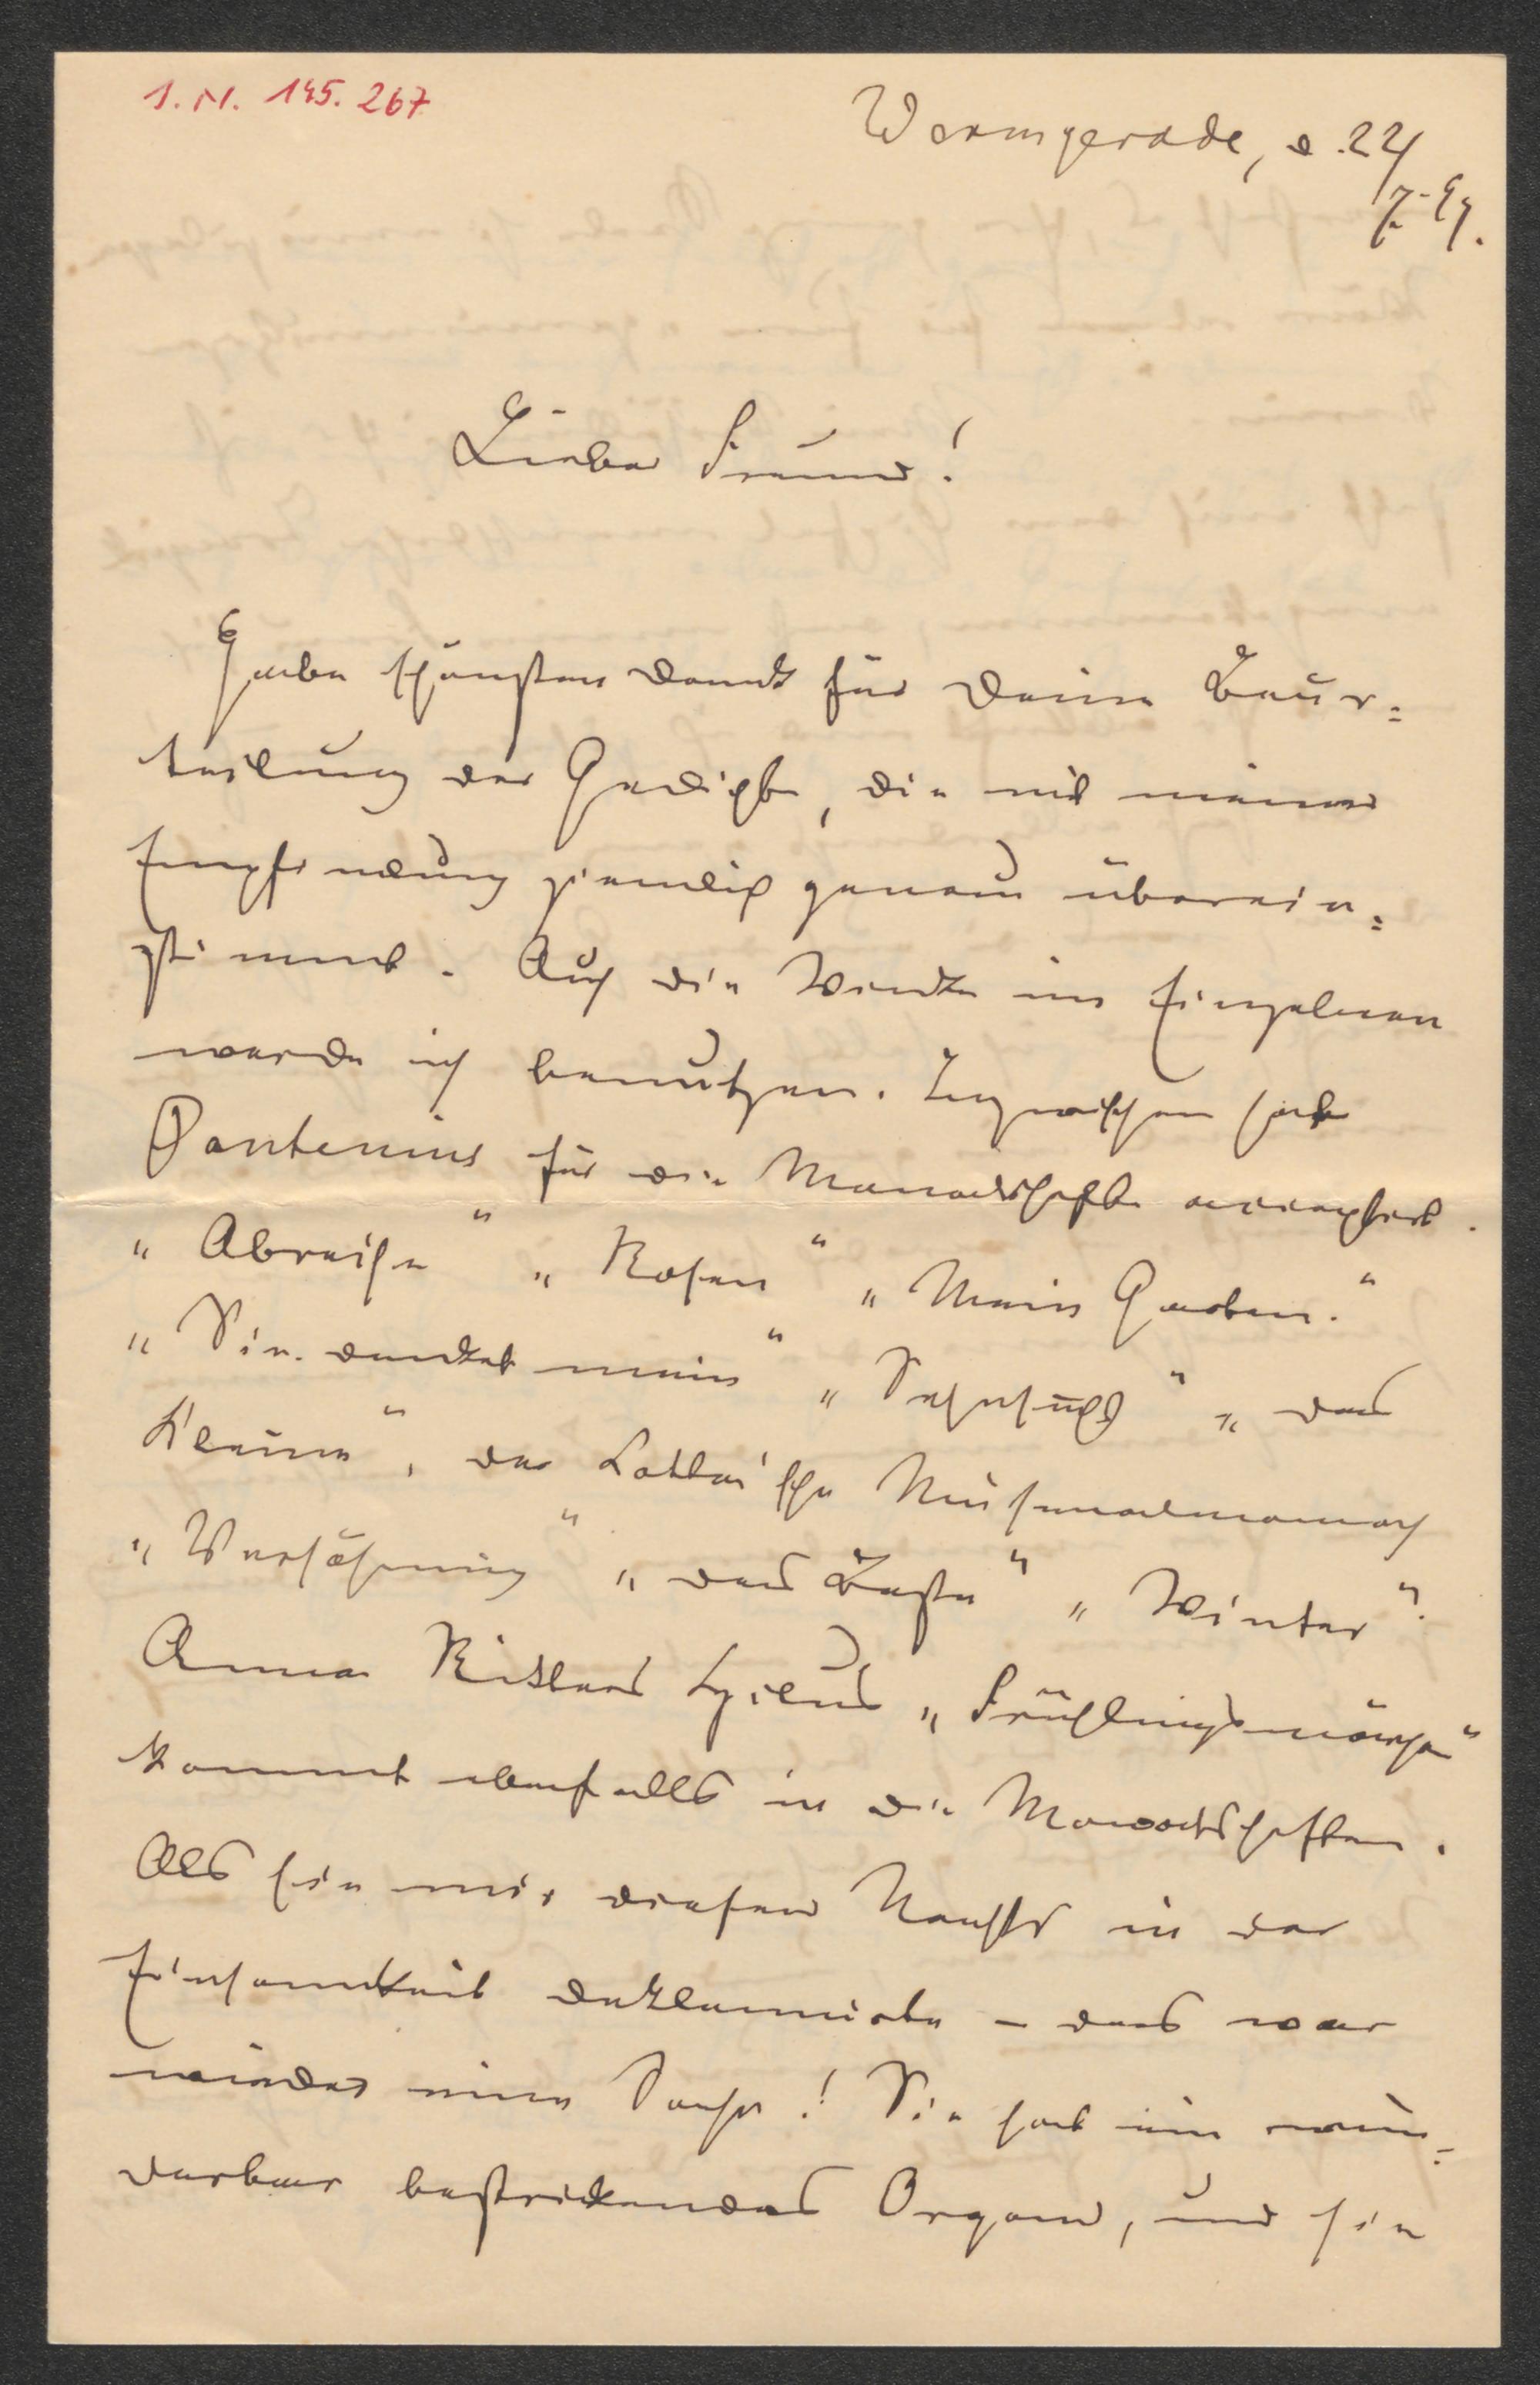 I. N. 145.267
Wernigerode, d. 22/
7. 97.
Lieber Freund!
Habe schönsten Dank für Deine Beur=
teilung der Gedichte, die mit meiner
Empfindung ziemlich genau überein=
stimmt. Auch die Winke im Einzelnen
werde ich benutzen. Inzwischen hat
Pantenius für die Monatshefte acceptirt.
„Abreise“ „Rosen“ „Mein Garten.“
„Sie denket mein“ „Sehnsucht“ „das
Kleine“, der Cotta'sche Musenalmanach
„Versöhnung“ „das Beste“ „Winter“.
Anna Ritters Cyclus „Frühlingsmärchen“
kommt ebenfalls in die Monatsheften.
Als sie mir diesen Nachts in der
Einsamkeit deklamirte – das war
wieder eine Sache! Sie hat ein wun=
derbar bestrickendes Organ, und sie